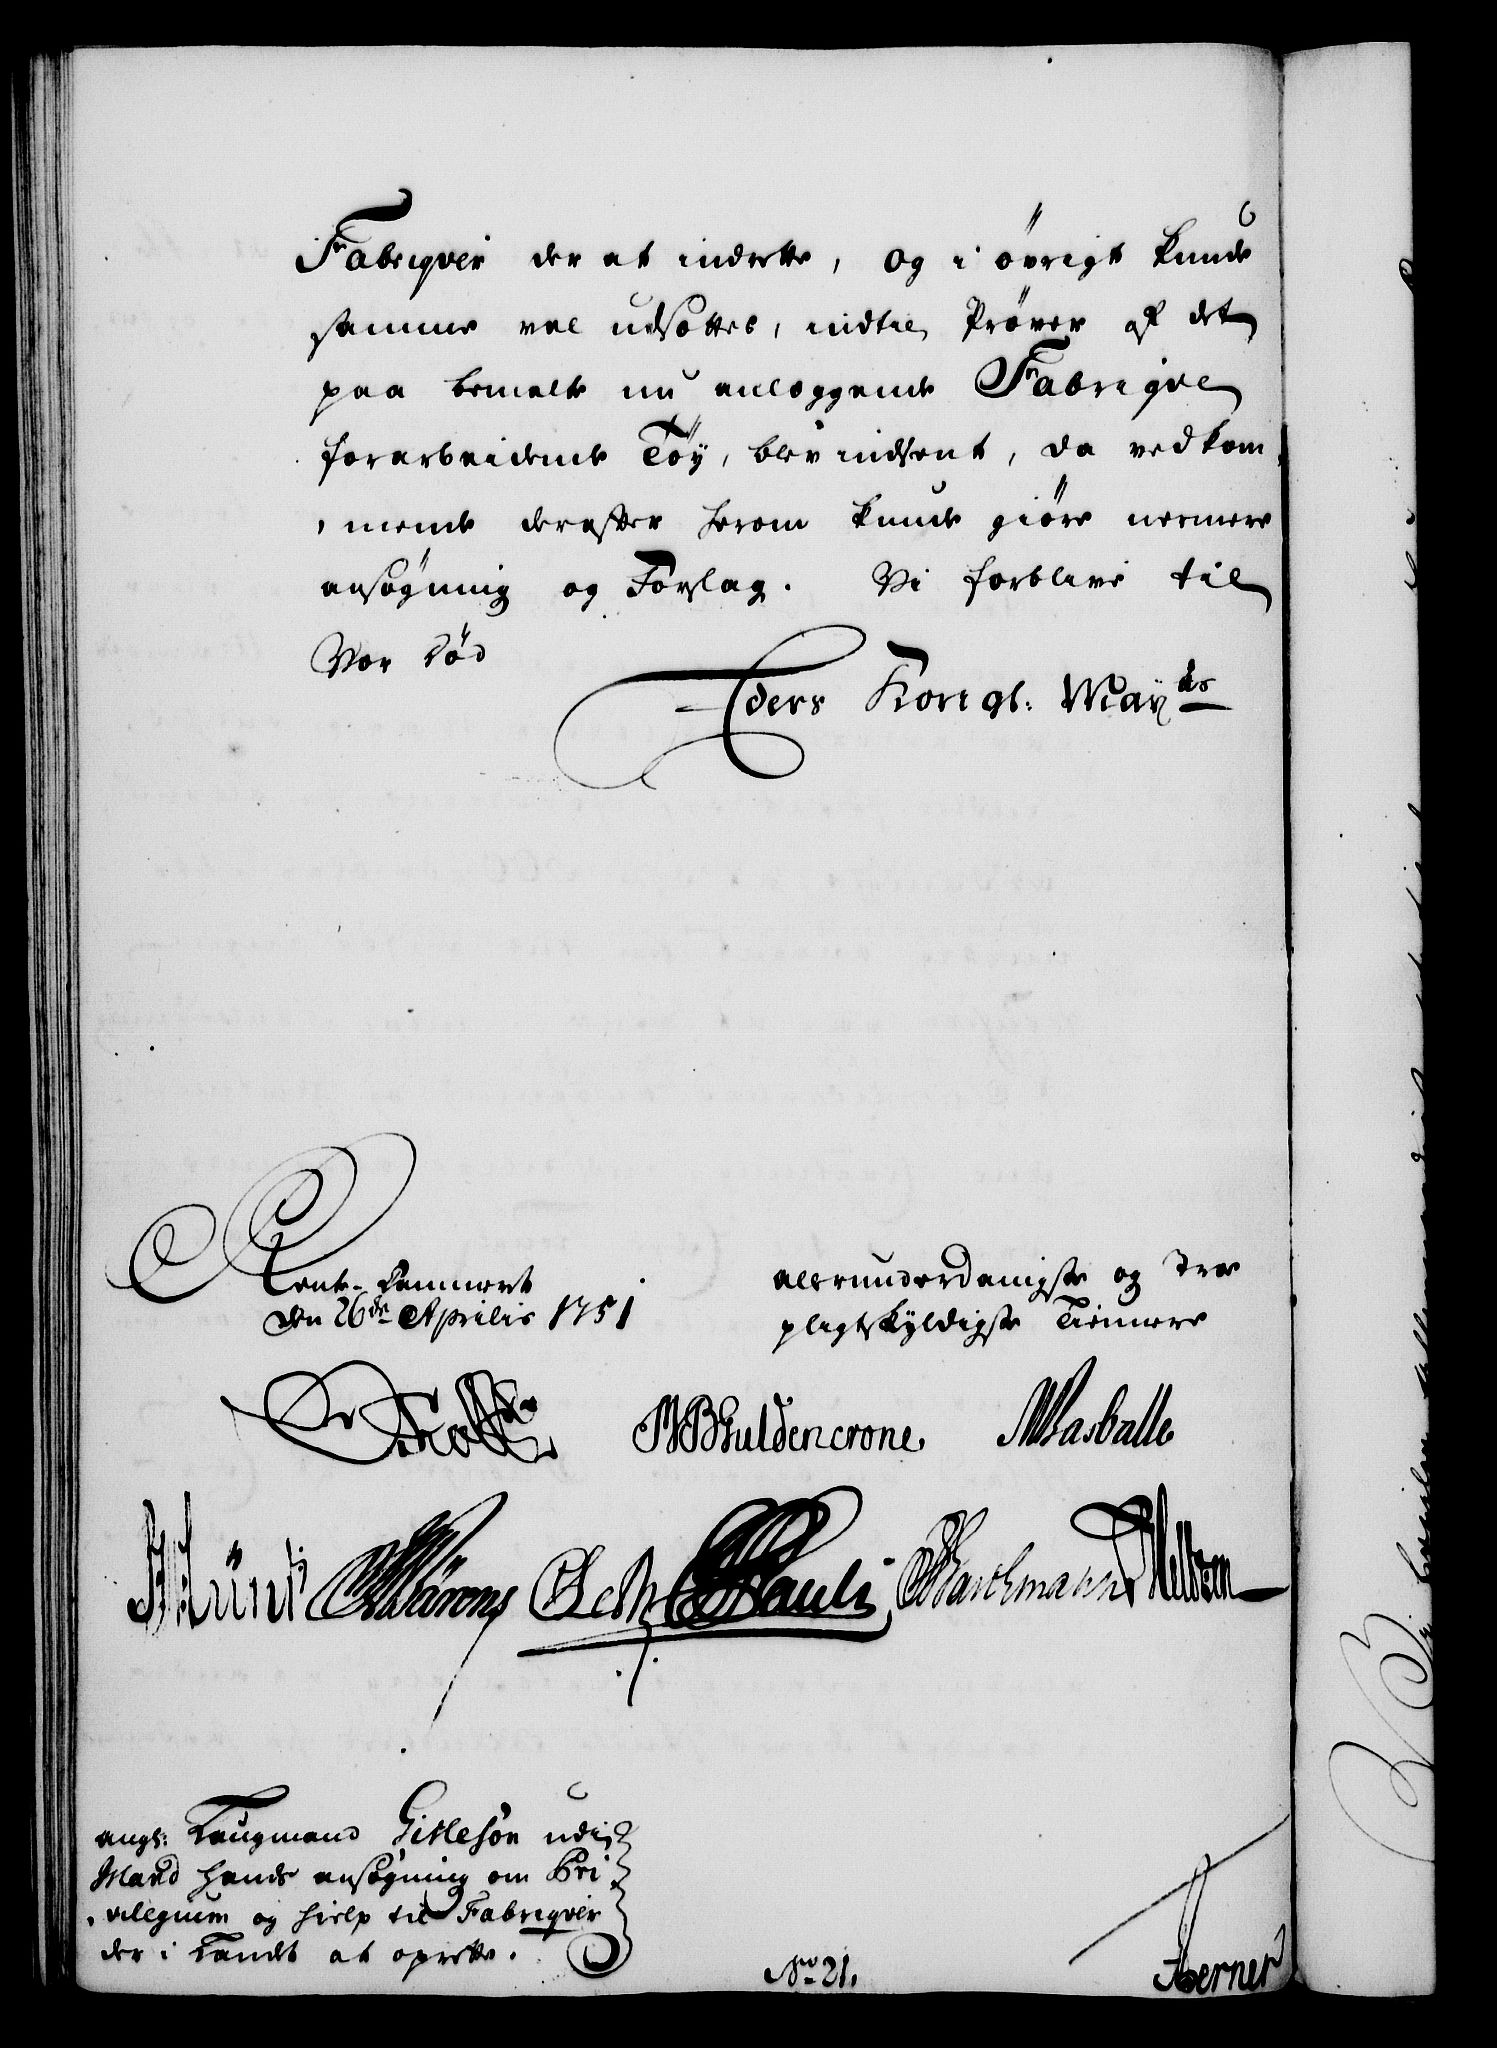 Fabriqver der at indrette, og i øvrigt kunde
samme vel udsættes, indtil Prøver af det
paa bemelte nu anlæggende Fabriqve
forarbeidende Tøy, blev indsent, da vedkom
mende derefter herom kunde giøre nermere
ansøgning og Forslag. Vi forblive til
Vor Død
Eders Kongl: May.ts
Rente-Cammeret
den 26de Aprilis 1751
allerunderdanigste og Troe
pligtskyldigste Tiennere
Holstein
MBGuldencrone
Basballe
Pauli
Barchmann
angl: Kaugmand Gisleson udi
Island hands ansøgning om Pri
vilegium og hielp til Fabriqver
der i Landet at oprette.
No 21.
Berner